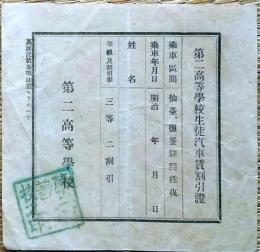 第二高等學校生徒汽車賃割引證
乘車區間 仙臺、鹽釜驛間往復
乘車年月日 明治 年 月 日
姓名
等級及割引率 三等 二割引
第二高等學校